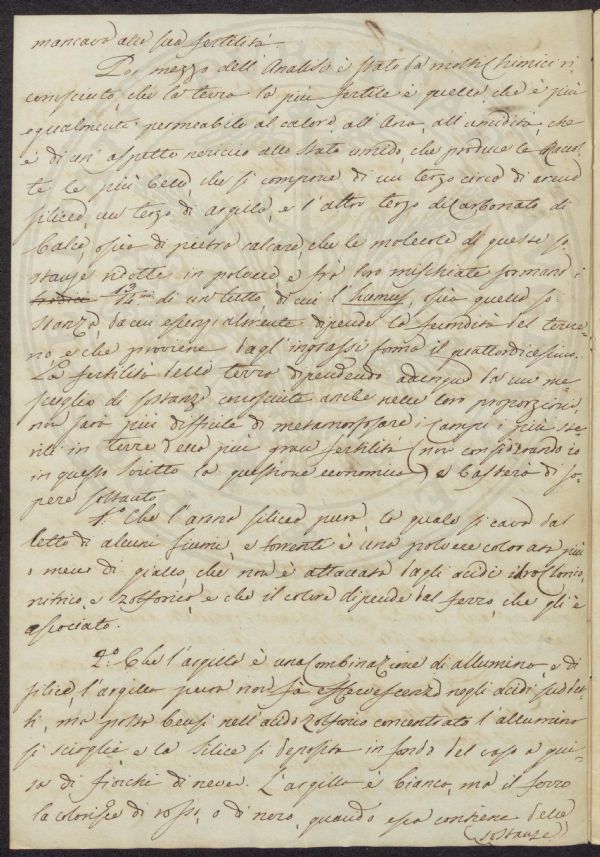 mancava alla sua fertilità.
Per mezzo dell'Analisi è stato da molti Chimici ri
conosciuto, che la terra la più fertile è quella, che è più
egualmente permeabile al calore, all'Aria, all'umidità, che
è di un aspetto nericcio allo stato umido, che produce le Racol
te le più belle, che si compone di un terzo circa di arena
silicea, un terzo di argilla, e l'altro terzo di Carbonato di
Calce, ossia di pietra calcare, che le molecole di queste so
stanze ridotte in polvere e frà loro mischiate formano i
tredici 13/14mi di un tutto, di cui l'humus, ossia quella so
stanza, da cui essenzialmente dipende la fecondità del terre
no, e che proviene dagl'ingrassi forma il quattordicesimo.
La fertilità della terra dipendendo adunque da un me
scuglio di sostanze conosciute anche nelle loro proporzioni,
non sarà più difficile di metamorfosare i Campi i più ste
rili in terre della più gran fertilità (non considerando io
in questo scritto la questione economica) e basterà di sa
pere soltanto
1.° Che l'arena silicea pura, la quale si cava dal
letto di alcuni fiumi, e torrenti è una polvere colorata più
o meno di giallo, che non è attaccata dagli acidi idroclorico,
nitrico, e zolforico, e che il colore dipende dal ferro, che gli è
associato.
2.° Che l'argilla è una Combinazione di allumina, e di
silice, l'argilla pura non fà effervescenza negli acidi suddet
ti, ma posta bensì nell'acido zolforico concentrato l'allumina
si scioglie e la Silice si deposita in fondo del vaso a gui
sa di fiocchi di neve. L'argilla è bianca, ma il ferro
la colorisce di rosso, o di nero, quando essa contiene delle
sostanze